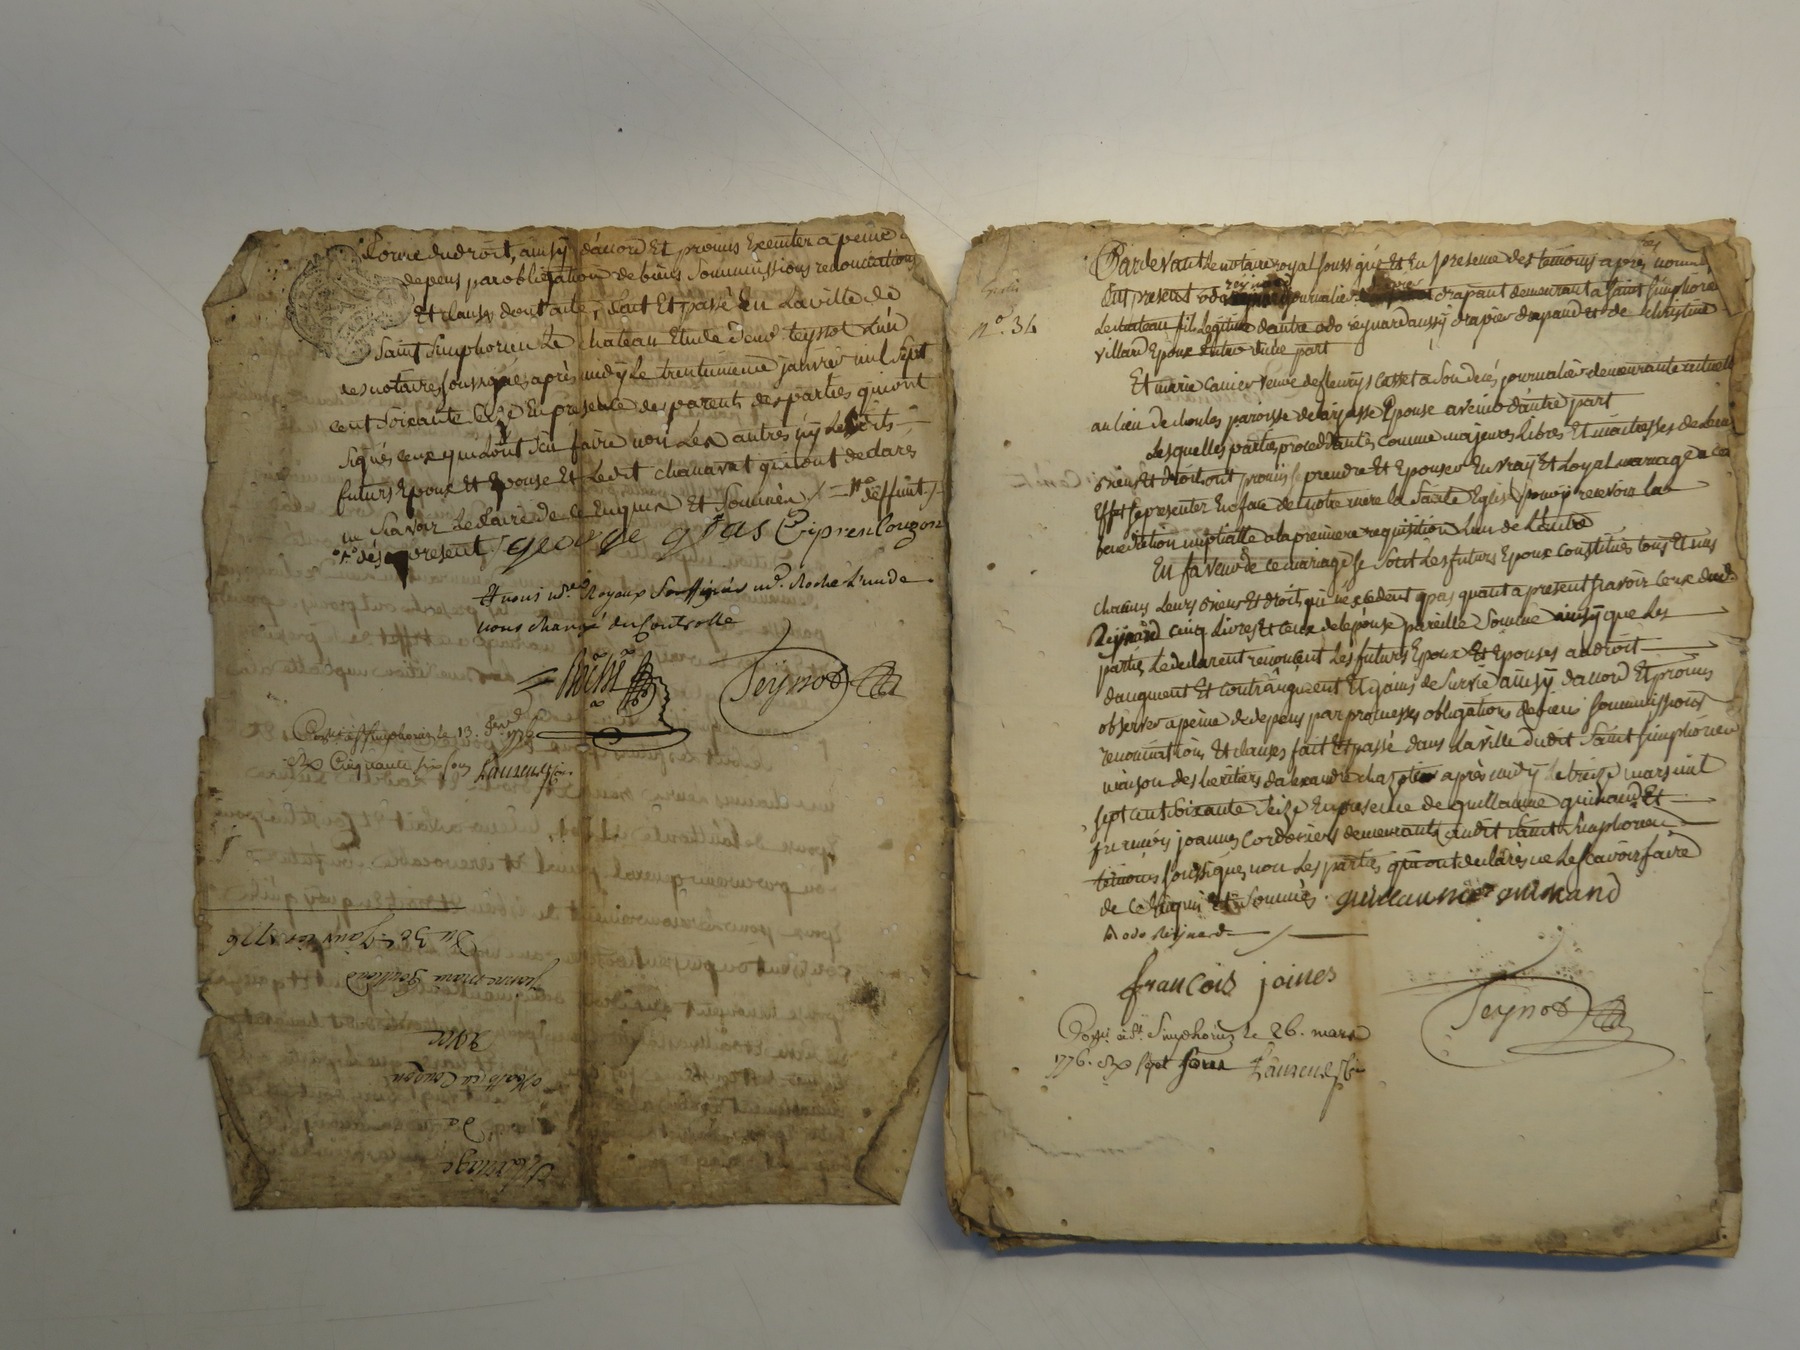 forme du droit, ainsy d'acord Et promis Executer a peine
depens par obligation de biens Soummissions renonciations
Et clauses dont acte, dont Et passé En La ville de
Saint Simphorien Le chateau Etude d'eud. teynot L'un
des notaires soussignés, après midy Le trentunieme janvier mil sept
cent soixante seize En presence des parents des parties qui ont
signés ceux qui L'ont sçu faire non Les autres ny Lesdits
futurs Epoux Et Epouse Et Ledit chanavat qui ont declarés
ne sçavoir Le faire de ce Enquis Et Sommés
dès a present george gras Ciprien cougon
Et nous Nres Royaux Soussignés Me Roche L'un de
nous chargé du Controlle
Roche
Teynot
Conté à St Simphorien le 13.
Cinquante six sols Laurenson
Du 30e Janvier 1776
Jeanne marie
avec
cougon
De
Mariage
Pardevant Le notaire royal soussigné Et En presence des temoins après nommés
Nº. 34
fut present odo reynard journalier drapant demeurant a Saint Simphorien
Le chateau fils Legitime d'autre odo reynard aussy drapier drapant et de christine
villard Epoux d'une part
Et marie canier veuve de fleury s casset a son decés journalier demeurante
au lieu de choules paroisse de larajasse Epouse avenir d'autre part
Lesquelles parties procedantes comme majeures Libres Et maitresses de Leurs
biens Et droits ont promis se prendre Et Epouser En vray Et Loyal mariage a cet
Effet se presenter En face de notre mere la Sainte Eglise pour y recevoir La
benediction nuptialle a la premiere requisition L'un de L'autre
En faveur de ce mariage se sont Les futurs Epoux constitués tous Et uns
chacuns Leurs biens Et droits qui n'excedent pas quant a present sçavoir ceux dudt
Reynard cinq Livres Et ceux de l'épouse pareille Somme ainsy que Les
parties Le declarent renonçent Les futurs Epoux Et Epouses au droit
d'augment Et contr'augment Et gains de Survie ainsy d'acord Et promis
observer a peine de depens par promesses obligations de biens soummissions
renonciations Et clauses fait Et passé dans La ville dudit Saint simphorien
maison des heritiers d'alexandre après midy le treize mars mil
sept cent soixante seize En presence de guillaume guinand Et
françois joannes Cordoniers demeurants audit Saint Simphorien
temoins soussignés, non Les parties qui ont declarés ne Le sçavoir faire
de ce Enquis Et Sommés. guilleaume guinand
odo reynard
françois joines
Teynot
Conté à St. Simphorien le 26. mars
1776. Rx sept sous Laurenson